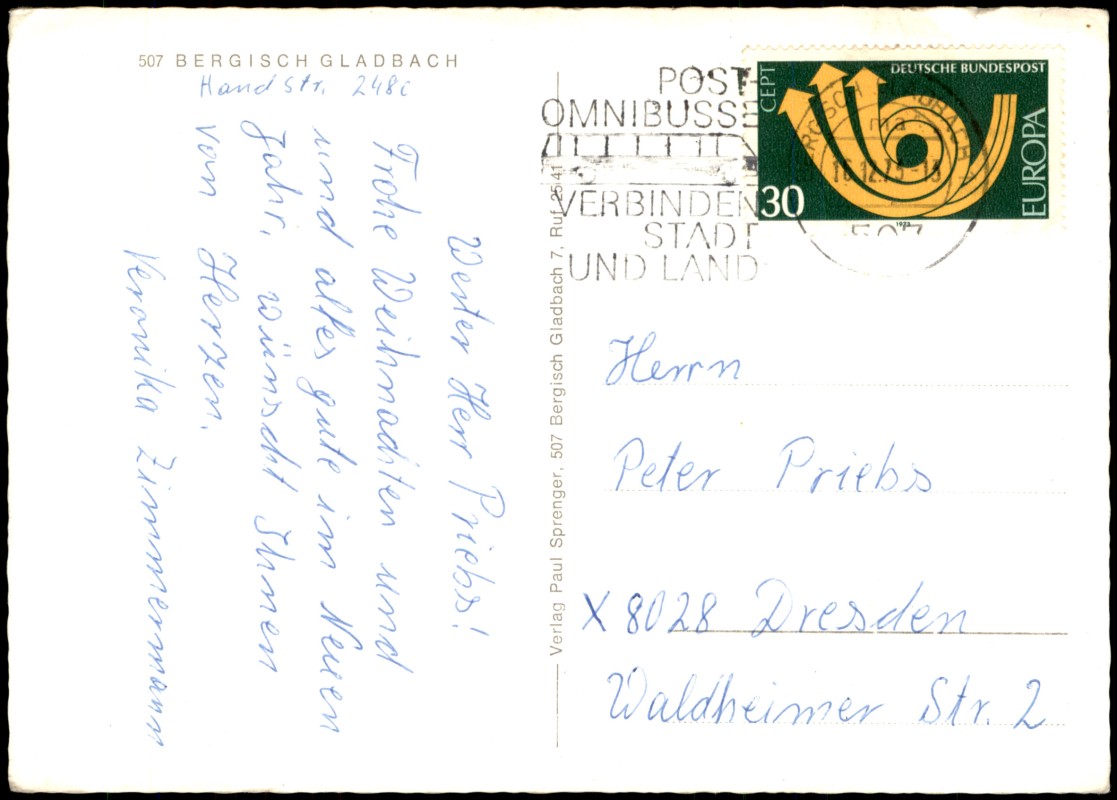 507 BERGISCH GLADBACH
Handstr. 248c
Werter Herr Priebs!
Frohe Weihnachten und
und alles gute im Neuen
Jahr, wünscht Ihnen
von Herzen.
Veronika Zimmermann
Verlag Paul Sprenger, 507 Bergisch Gladbach 7, Ruf 2541
POST-
OMNIBUSSE
VERBINDEN
STADT
UND LAND
DEUTSCHE BUNDESPOST
CEPT
EUROPA
30
1973
16.12.73-15
507
Herrn
Peter Priebs
X 8028 Dresden
Waldheimer Str. 2